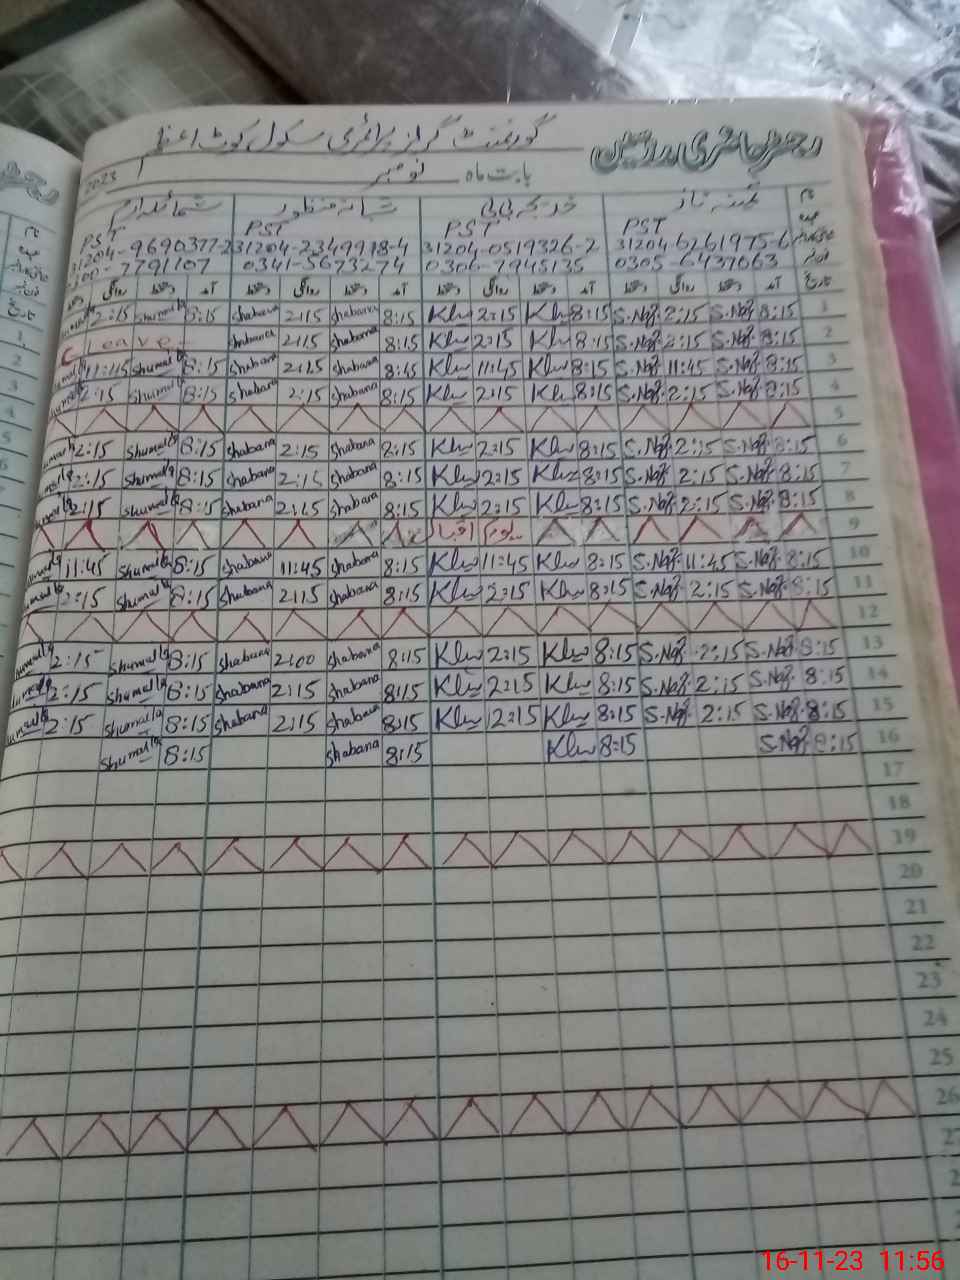 رجسٹر حاضری مدرسین گورنمنٹ گرلز پرائمری سکول کوٹ اعظم
بابت ماہ نومبر 2023
نام نگینہ ناز خدیجہ بی بی شبانہ منظور شمائلہ ارم
عہدہ PST PST PST PST
31204-6261975-6 31204-0519326-2 31204-2349918-4 31204-9690377-2
0305-6437663 0306-7945135 0341-5673274 7791107
تاریخ آمد دستخط روانگی دستخط آمد دستخط روانگی دستخط آمد دستخط روانگی دستخط آمد دستخط روانگی دستخط
1 8:15 S.Naz 2:15 S.Naz 8:15 Khu 2:15 Khu 8:15 Shabana 2:15 Shabana 8:15 Shumaila 2:15
2 8:15 S.Naz 2:15 S.Naz 8:15 Khu 2:15 Khu 8:15 Shabana 2:15 Shabana C Leave
3 8:15 S.Naz 11:45 S.Naz 8:15 Khu 11:45 Khu 8:45 Shabana 2:15 Shabana 8:15 Shumaila 11:45
4 8:15 S.Naz 2:15 S.Naz 8:15 Khu 2:15 Khu 8:15 Shabana 2:15 Shabana 8:15 Shumaila 2:15
5
6 8:15 S.Naz 2:15 S.Naz 8:15 Khu 2:15 Khu 8:15 Shabana 2:15 Shabana 8:15 Shumaila 2:15
7 8:15 S.Naz 2:15 S.Naz 8:15 Khu 2:15 Khu 8:15 Shabana 2:15 Shabana 8:15 Shumaila 2:15
8 8:15 S.Naz 2:15 S.Naz 8:15 Khu 2:15 Khu 8:15 Shabana 2:15 Shabana 8:15 Shumaila 2:15
9 یوم اقبال
10 8:15 S.Naz 11:45 S.Naz 8:15 Khu 11:45 Khu 8:15 Shabana 11:45 Shabana 8:15 Shumaila 11:45
11 8:15 S.Naz 2:15 S.Naz 8:15 Khu 2:15 Khu 8:15 Shabana 2:15 Shabana 8:15 Shumaila 2:15
12
13 8:15 S.Naz 2:15 S.Naz 8:15 Khu 2:15 Khu 8:15 Shabana 2:00 Shabana 8:15 Shumaila 2:15
14 8:15 S.Naz 2:15 S.Naz 8:15 Khu 2:15 Khu 8:15 Shabana 2:15 Shabana 8:15 Shumaila 2:15
15 8:15 S.Naz 2:15 S.Naz 8:15 Khu 2:15 Khu 8:15 Shabana 2:15 Shabana 8:15 Shumaila 2:15
16 8:15 S.Naz 8:15 Khu 8:15 Shabana 8:15 Shumaila
17
18
19
20
21
22
23
24
25
26
27
16-11-23 11:56